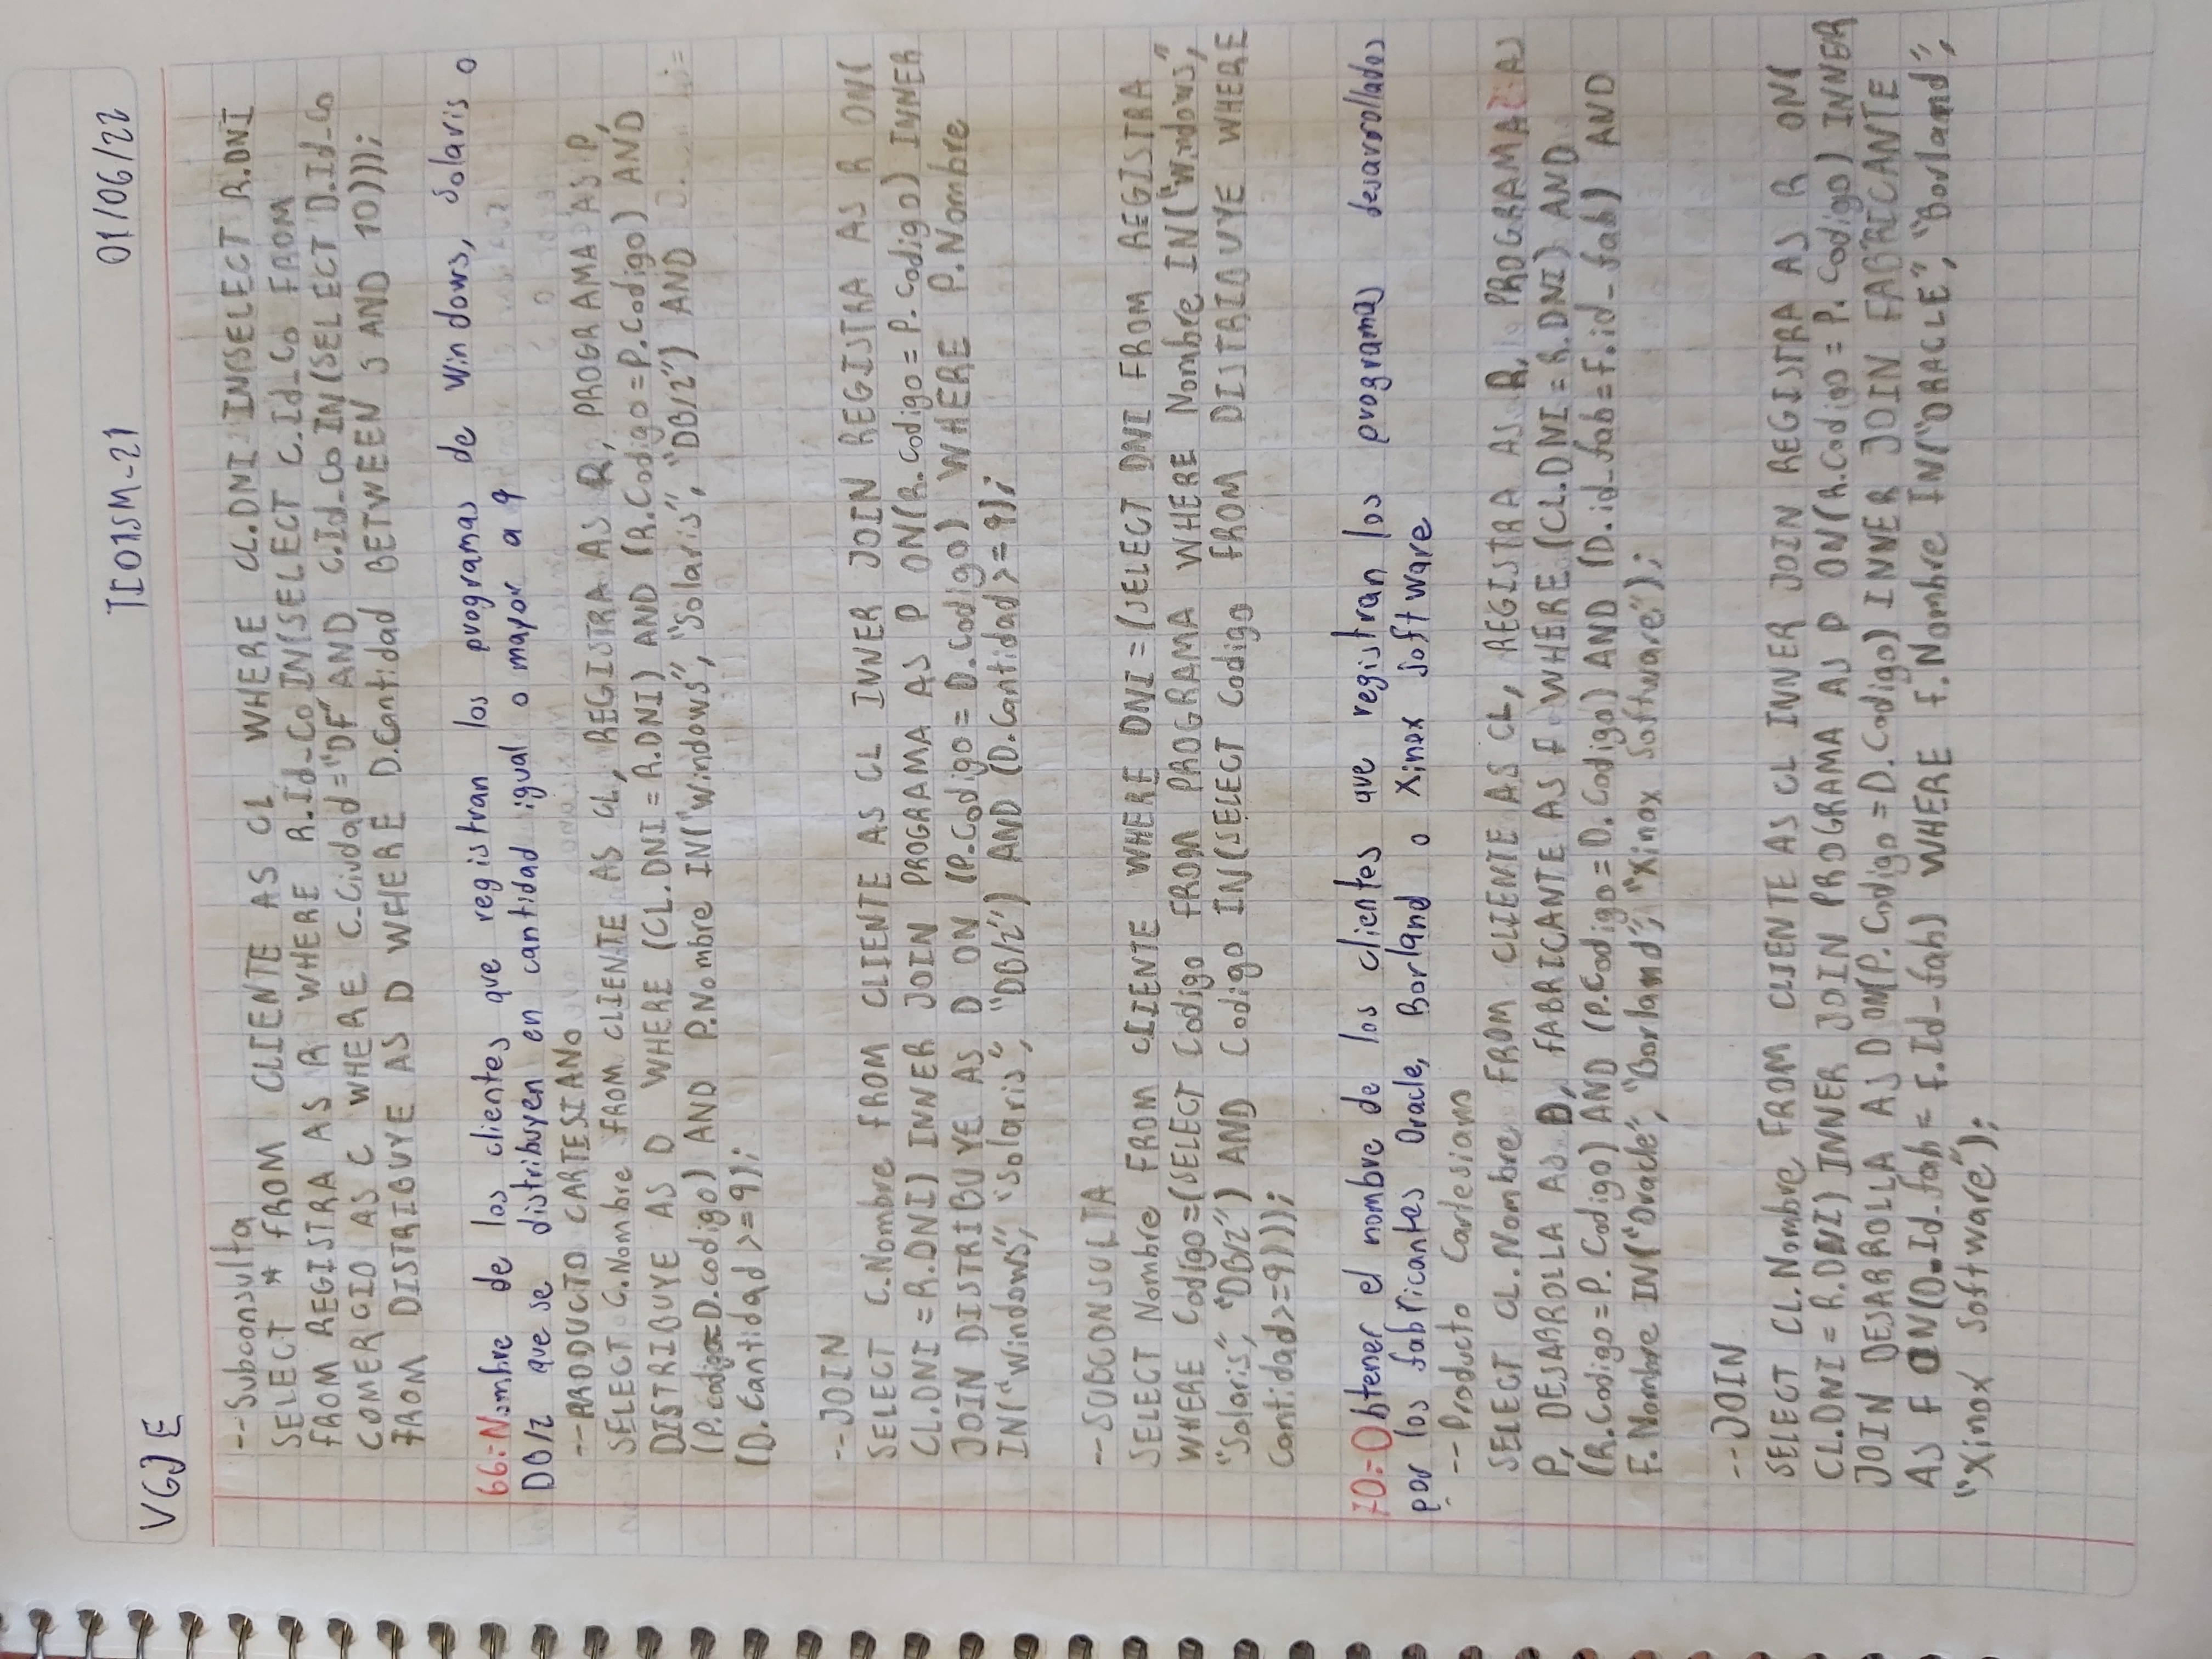 TI01SM-21 01/06/22
VGJE
--Subconsulta
SELECT * FROM CLIENTE AS CL WHERE CL.DNI IN(SELECT R.DNI
FROM REGISTRA AS R WHERE R.Id_Co IN(SELECT C.Id_Co FROM
COMERCIO AS C WHERE C.Ciudad="DF" AND C.Id_Co IN(SELECT D.Id_Co
FROM DISTRIBUYE AS D WHERE D.Cantidad BETWEEN 5 AND 10)));
66.-Nombre de los clientes que registran los programas de Windows, Solaris o
DB/2 que se distribuyen en cantidad igual o mayor a 9
--PRODUCTO CARTESIANO
SELECT C.Nombre FROM CLIENTE AS CL, REGISTRA AS R, PROGRAMA AS P,
DISTRIBUYE AS D WHERE (CL.DNI = R.DNI) AND (R.Codigo=P.Codigo) AND
(P.codigo=D.codigo) AND P.Nombre IN("Windows", "Solaris", "DB/2") AND
(D.Cantidad >=9);
--JOIN
SELECT C.Nombre FROM CLIENTE AS CL INNER JOIN REGISTRA AS R ON(
CL.DNI =R.DNI) INNER JOIN PROGRAMA AS P ON(R.Codigo= P.Codigo) INNER
JOIN DISTRIBUYE AS D ON (P.Codigo= D.Codigo) WHERE P.Nombre
IN("Windows", "Solaris", "DB/2") AND (D.Cantidad>=9);
--SUBCONSULTA
SELECT Nombre FROM CLIENTE WHERE DNI =(SELECT DNI FROM REGISTRA
WHERE Codigo=(SELECT Codigo FROM PROGRAMA WHERE Nombre IN("Windows",
"Solaris", "DB/2") AND Codigo IN(SELECT Codigo FROM DISTRIBUYE WHERE
Cantidad>=9)));
70.-Obtener el nombre de los clientes que registran los programas desarrollados
por los fabricantes Oracle, Borland o Xinox Software
--Producto Cartesiano
SELECT CL.Nombre FROM CLIENTE AS CL, REGISTRA AS R, PROGRAMA AS
P, DESARROLLA AS D, FABRICANTE AS F WHERE (CL.DNI = R.DNI) AND
(R.Codigo=P.Codigo) AND (P.Codigo=D.Codigo) AND (D.id_fab=F.id_fab) AND
F.Nombre IN("Oracle", "Borland", "Xinox Software");
--JOIN
SELECT CL.Nombre FROM CLIENTE AS CL INNER JOIN REGISTRA AS R ON(
CL.DNI = R.DNI) INNER JOIN PROGRAMA AS P ON(R.Codigo = P.Codigo) INNER
JOIN DESARROLLA AS D ON(P.Codigo=D.Codigo) INNER JOIN FABRICANTE
AS F ON(D.Id_fab= F.Id_fab) WHERE F.Nombre IN("ORACLE", "Borland",
"Xinox Software");